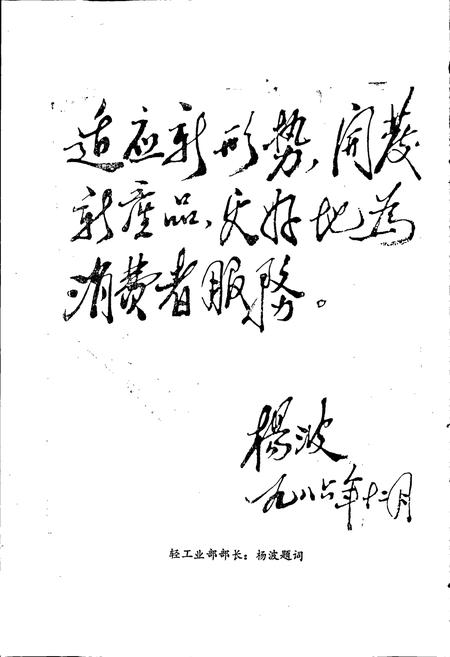 适应新形势、开发
新產品、更好地为
消费者服務。
杨波
一九八六年十二月
轻工业部部长：杨波题词